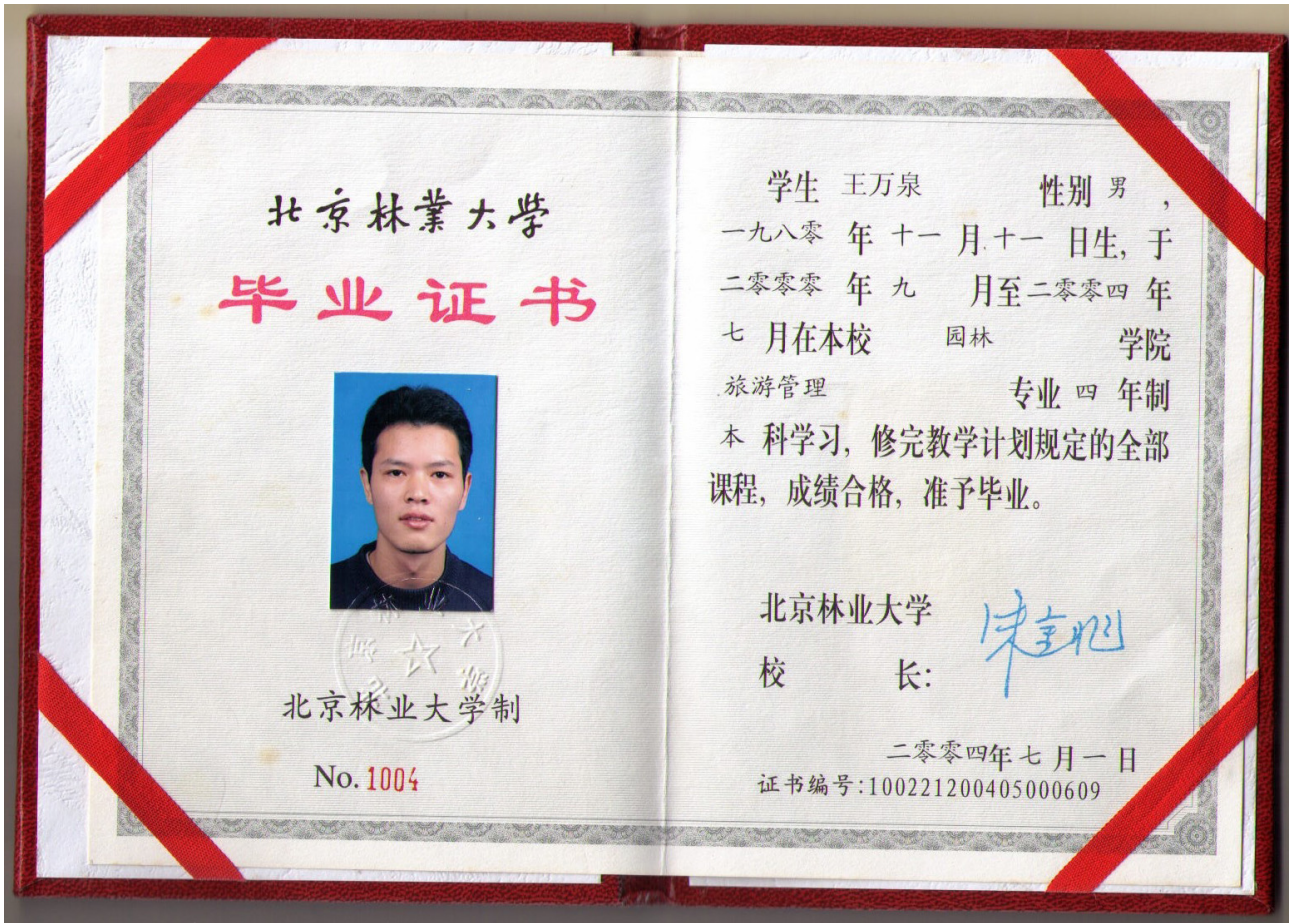 北京林業大學
毕业证书
北京林业大学
北京林业大学制
No. 1004
学生 王万泉 性别 男，
一九八零 年 十一 月 十一 日生，于
二零零零 年 九 月至 二零零四 年
七 月在本校 园林 学院
旅游管理 专业 四 年制
本 科学习，修完教学计划规定的全部
课程，成绩合格，准予毕业。
北京林业大学
校 长：
二零零四年 七 月 一 日
证书编号:100221200405000609